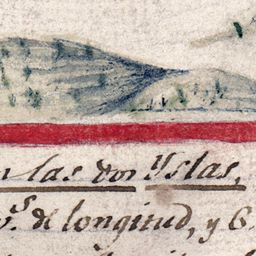 n las dos Yslas,
s. de longitud, y 6